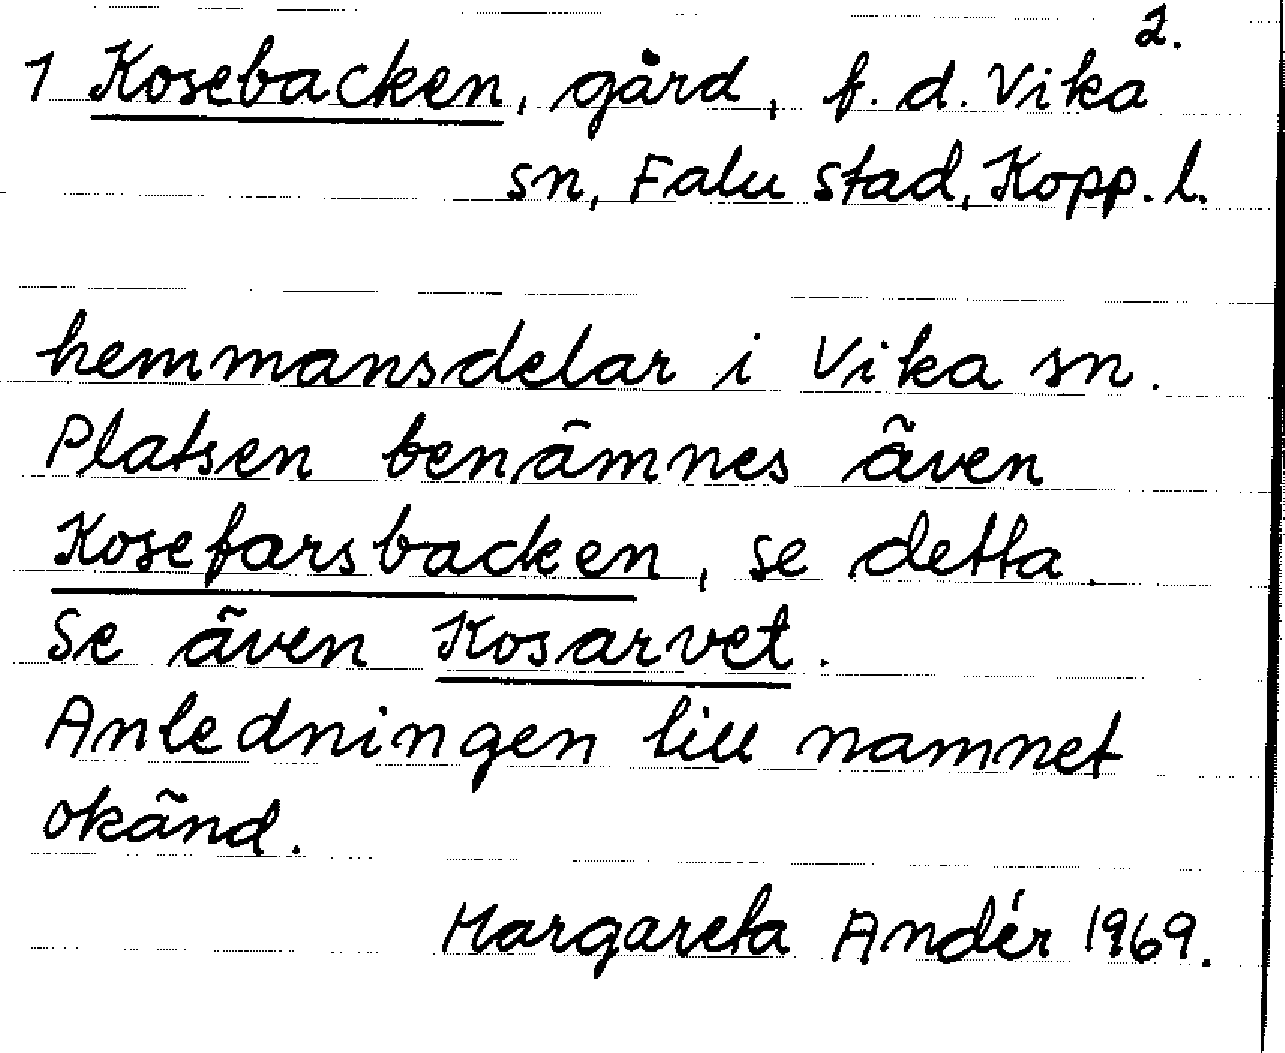 2.
1 Kosebacken, gård, f. d. Vika
sn, Falu stad, Kopp. l.
hemmansdelar i Vika sn.
Platsen benämnes även
Kosefarsbacken, se detta.
Se även Kosarvet.
Anledningen till namnet
okänd.
Margareta Andér 1969.